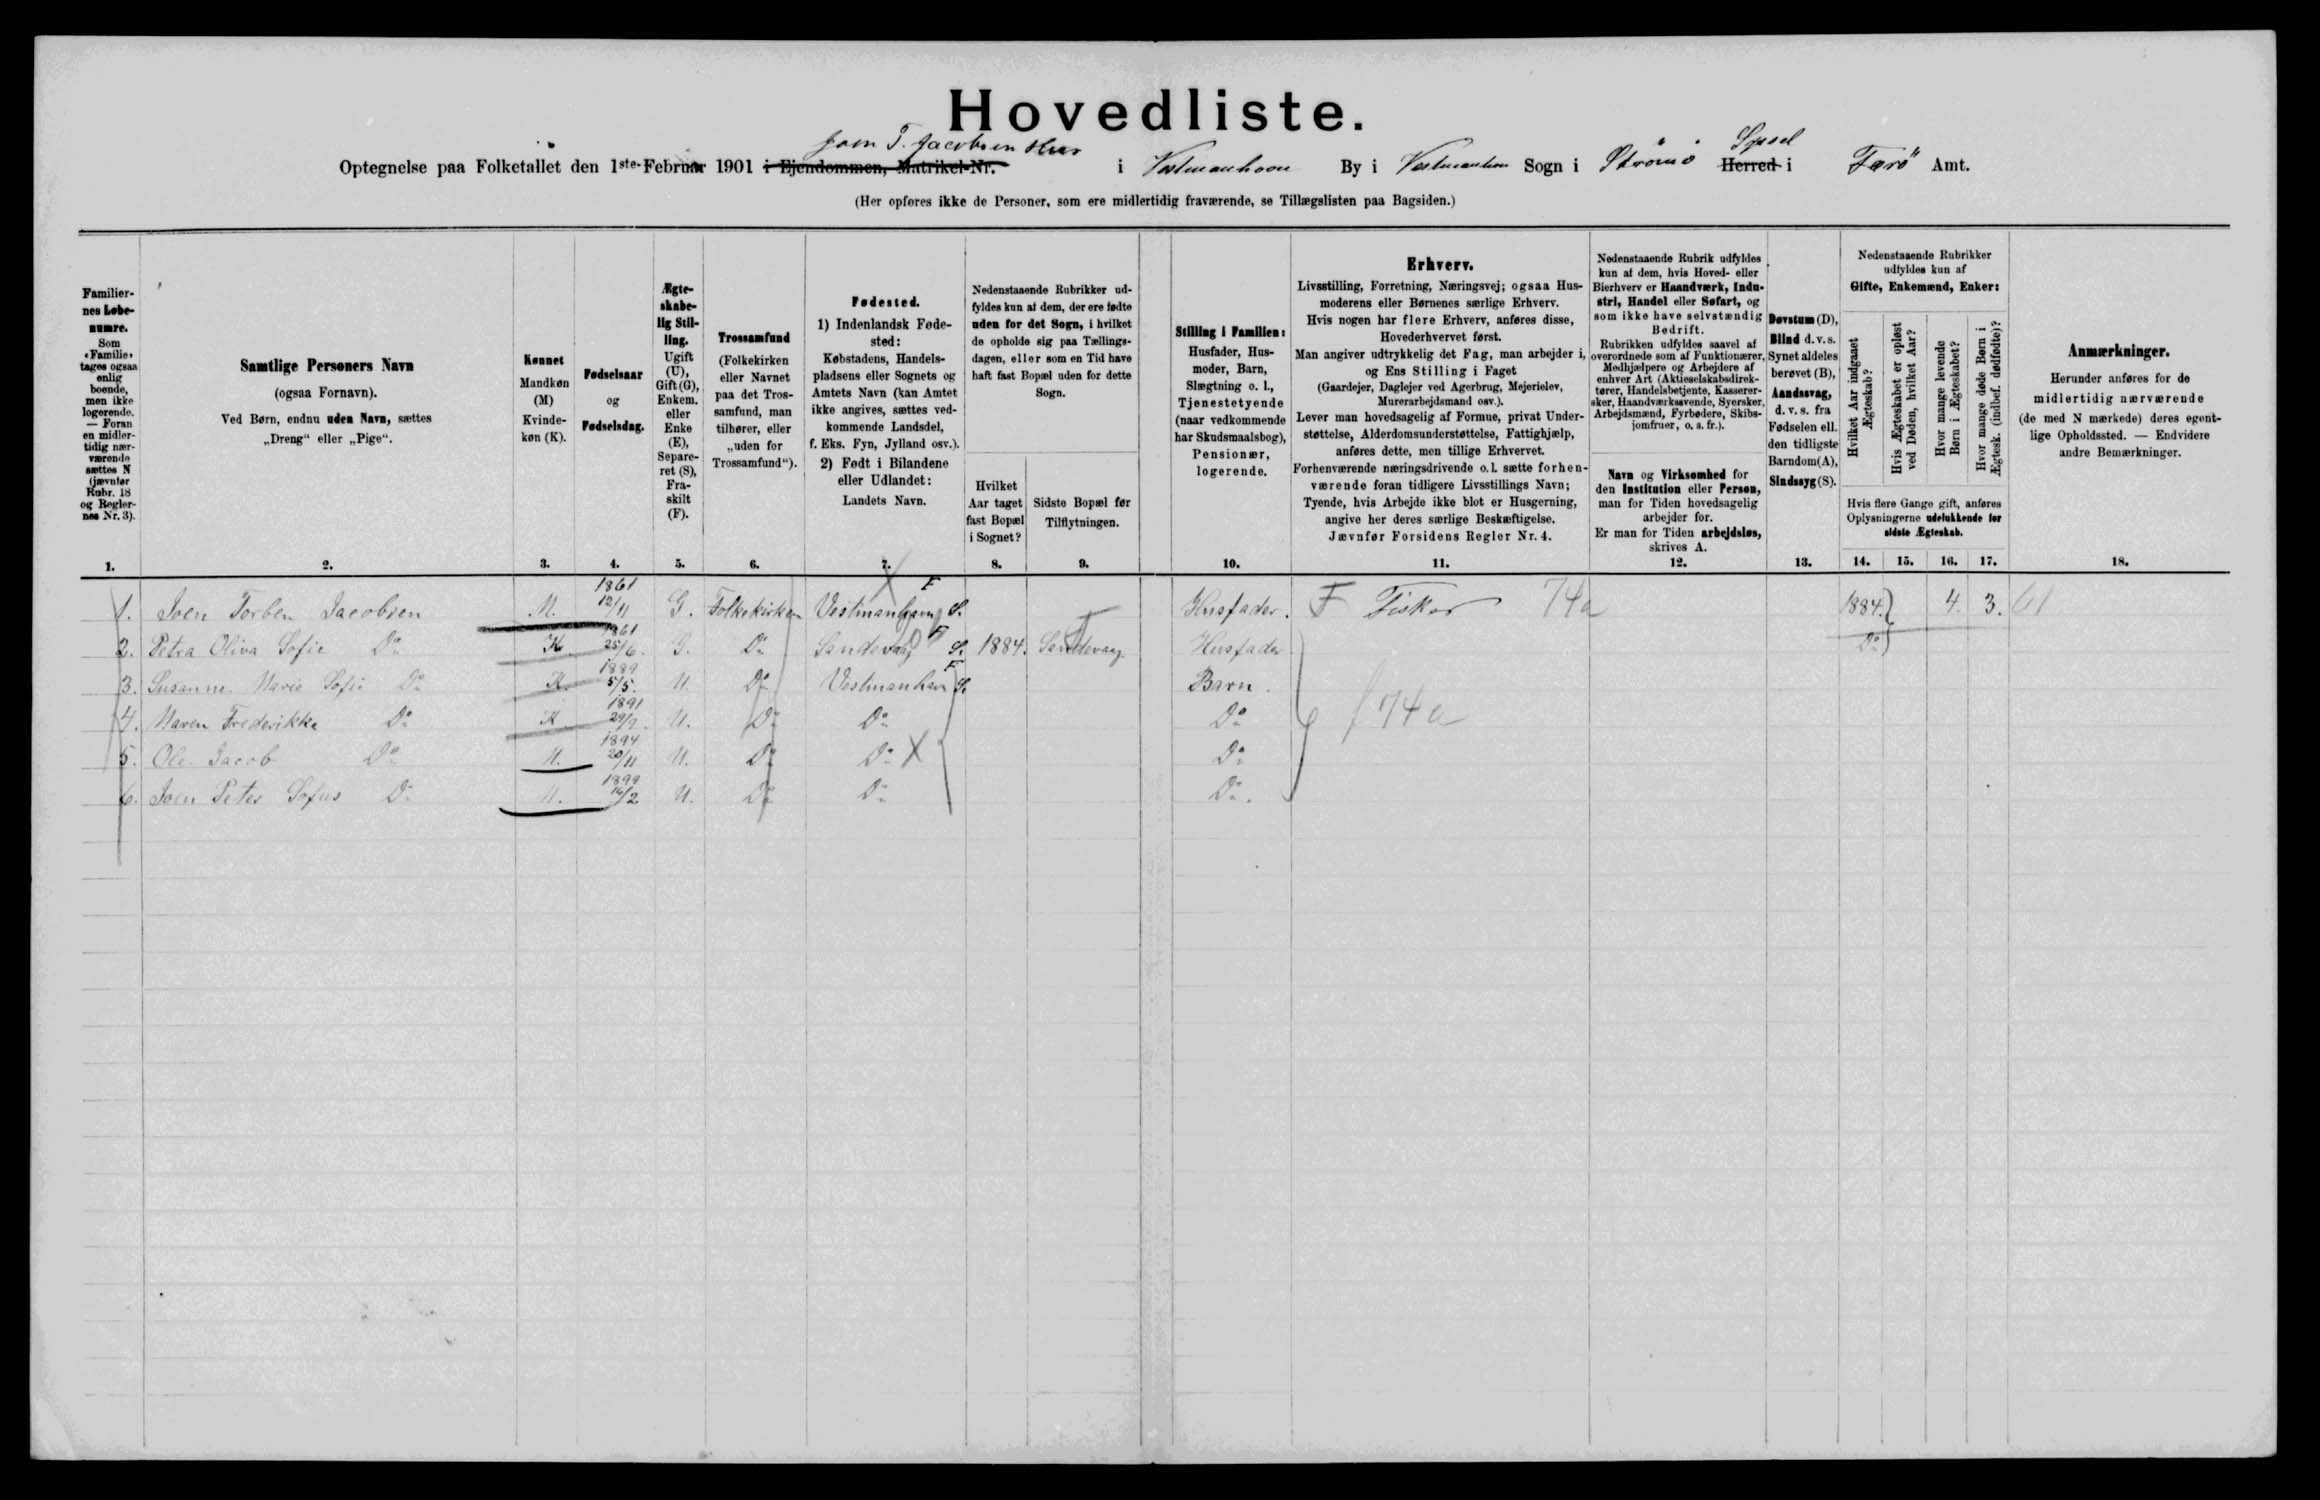 Hovedliste.
Joen T. Jacobsen Hus
Syssel
Optegnelse paa Folketallet den 1ste Februar 1901 i Ejendommen, Matrikel-Nr. i Vestmanhavn By i Vestmanhavn Sogn i Strömö Herred i Færö Amt.
(Her opføres ikke de Personer, som ere midlertidig fraværende, se Tillægslisten paa Bagsiden.)
Familier-
nes Løbe-
numre.
Som
»Familie«
tages ogsaa
enlig
boende,
men ikke
logerende.
— Foran
en midler-
tidig nær-
værende
sættes N
(jævnfør
Rubr. 18
og Regler-
nes Nr. 3).
1.
Samtlige Personers Navn
(ogsaa Fornavn).
Ved Børn, endnu uden Navn, sættes
„Dreng“ eller „Pige“.
2.
Kønnet
Mandkøn
(M)
Kvinde-
køn (K).
3.
Fødselsaar
og
Fødselsdag.
4.
Ægte-
skabe-
lig Stil-
ling.
Ugift
(U),
Gift (G),
Enkem.
eller
Enke
(E),
Separe-
ret (S),
Fra-
skilt
(F).
5.
Trossamfund
(Folkekirken
eller Navnet
paa det Tros-
samfund, man
tilhører, eller
„uden for
Trossamfund“).
6.
Fødested.
1) Indenlandsk Føde-
sted:
Købstadens, Handels-
pladsens eller Sognets og
Amtets Navn (kan Amtet
ikke angives, sættes ved-
kommende Landsdel,
f. Eks. Fyn, Jylland osv.).
2) Født i Bilandene
eller Udlandet:
Landets Navn.
7.
Nedenstaaende Rubrikker ud-
fyldes kun af dem, der ere fødte
uden for det Sogn, i hvilket
de opholde sig paa Tællings-
dagen, eller som en Tid have
haft fast Bopæl uden for dette
Sogn.
Hvilket
Aar taget
fast Bopæl
i Sognet?
8.
Sidste Bopæl før
Tilflytningen.
9.
Stilling i Familien:
Husfader, Hus-
moder, Barn,
Slægtning o. l.,
Tjenestetyende
(naar vedkommende
har Skudsmaalsbog),
Pensionær,
logerende.
10.
Erhverv.
Livsstilling, Forretning, Næringsvej; ogsaa Hus-
moderens eller Børnenes særlige Erhverv.
Hvis nogen har flere Erhverv, anføres disse,
Hovederhvervet først.
Man angiver udtrykkelig det Fag, man arbejder i,
og Ens Stilling i Faget
(Gaardejer, Daglejer ved Agerbrug, Mejerielev,
Murerarbejdsmand osv.).
Lever man hovedsagelig af Formue, privat Under-
støttelse, Alderdomsunderstøttelse, Fattighjælp,
anføres dette, men tillige Erhvervet.
Forhenværende næringsdrivende o. l. sætte forhen-
værende foran tidligere Livsstillings Navn;
Tyende, hvis Arbejde ikke blot er Husgerning,
angive her deres særlige Beskæftigelse.
Jævnfør Forsidens Regler Nr. 4.
11.
Nedenstaaende Rubrik udfyldes
kun af dem, hvis Hoved- eller
Bierhverv er Haandværk, Indu-
stri, Handel eller Søfart, og
som ikke have selvstændig
Bedrift.
Rubrikken udfyldes saavel af
overordnede som af Funktionærer,
Medhjælpere og Arbejdere af
enhver Art (Aktieselskabsdirek-
tører, Handelsbetjente, Kasserer-
sker, Haandværkssvende, Syersker,
Arbejdsmænd, Fyrbødere, Skibs-
jomfruer, o. s. fr.).
Navn og Virksomhed for
den Institution eller Person,
man for Tiden hovedsagelig
arbejder for.
Er man for Tiden arbejdsløs,
skrives A.
12.
Døvstum (D),
Blind d. v. s.
Synet aldeles
berøvet (B),
Aandssvag,
d. v. s. fra
Fødselen ell.
den tidligste
Barndom (A),
Sindssyg (S).
13.
Nedenstaaende Rubrikker
udfyldes kun af
Gifte, Enkemænd, Enker:
Hvilket Aar indgaaet
Ægteskab?
Hvis Ægteskabet er opløst
ved Døden, hvilket Aar?
Hvor mange levende
Børn i Ægteskabet?
Hvor mange døde Børn i
Ægtesk. (indbef. dødfødte)?
Hvis flere Gange gift, anføres
Oplysningerne udelukkende for
sidste Ægteskab.
14. 15. 16. 17.
Anmærkninger.
Herunder anføres for de
midlertidig nærværende
(de med N mærkede) deres egent-
lige Opholdssted. — Endvidere
andre Bemærkninger.
18.
1. Joen Torben Jacobsen M. 1861 12/11 G. Folkekirken Vestmanhavn F S. Husfader. F Fisker 74a 1884. 4. 3. 61
2. Petra Oliva Sofie Do K 1861 25/6. G. Do Sandevaag F S. 1884. Sandevaag Husfader Do
3. Susanne Marie Sofie Do K. 1889 5/5. U. Do Vestmanhavn F S. Barn.
4. Maren Frederikke Do K 1891 29/9. U. Do Do Do f 74a
5. Ole Jacob Do M. 1894 20/11 U. Do Do X Do
6. Joen Peter Sofus Do M. 1899 16/2 U. Do Do Do.